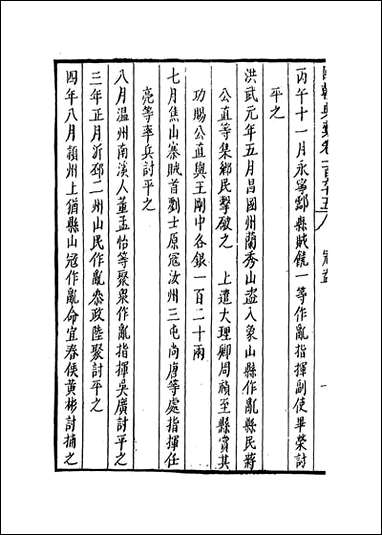 國朝典彙卷一百六十五 冦盗 一
丙午十一月永寧鄠縣賊饒一等作亂指揮副使畢榮討
平之
洪武元年五月昌國州蘭秀山盗入象山縣作亂縣民蔣
公直等集鄉民擊破之 上遣大理卿周禎至縣賞其
功賜公直與王剛中各銀一百二十兩
七月焦山寨賊首劉士原冦汝州三屯尚唐等處指揮任
亮等率兵討平之
八月溫州南溪人董孟怡等聚衆作亂指揮吳廣討平之
三年正月沂邳二州山民作亂叅政陸聚討平之
四年八月潁州上猶縣山冦作亂命宜春侯黄彬討捕之